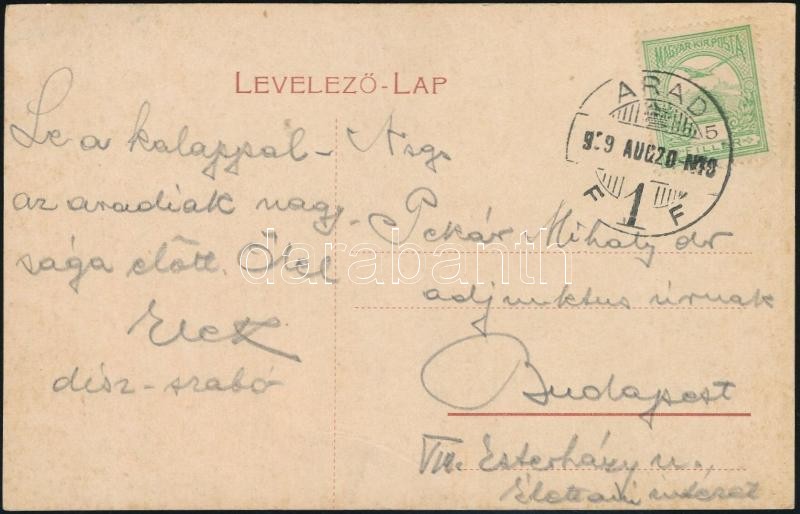 LEVELEZŐ-LAP
MAGYAR KIR. POSTA
5
FILLÉR
ARAD
909 AUG 20 N10
F 1 F
Le a kalappal
az aradiak nagy-
sága előtt. Ölel
Elek
disz-szabó
Nsgs
Pekár Mihály dr
adjunktus úrnak
Budapest
VIII. Esterházy u.,
Élettani intézet
darabanth